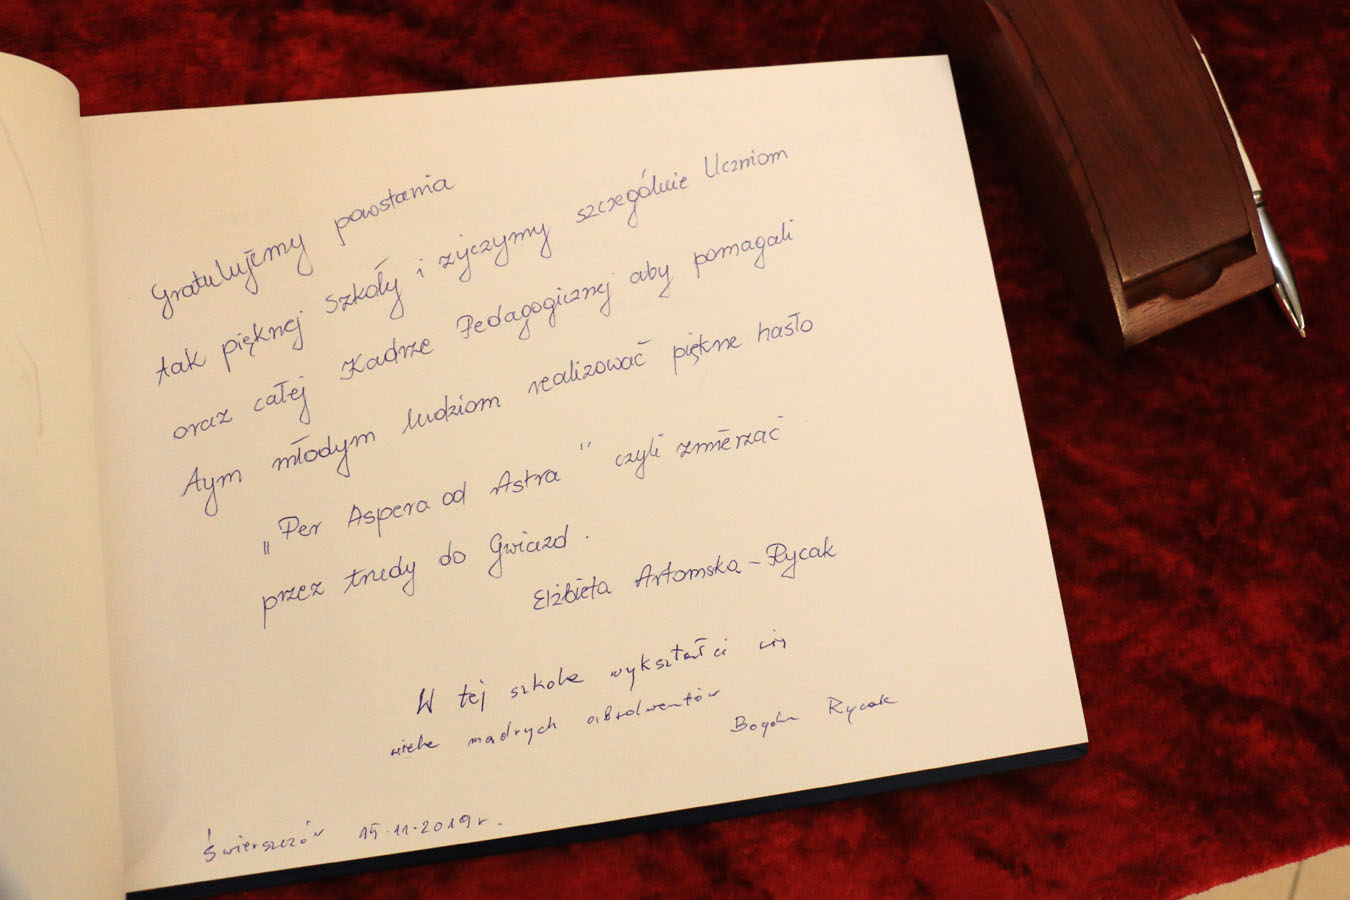 Gratulujemy powstania
tak pięknej Szkoły i życzymy szczególnie Uczniom
oraz całej Kadrze Pedagogicznej aby pomagali
Tym młodym ludziom realizować piękne hasło
„Per Aspera ad Astra" czyli zmierzać
przez trudy do Gwiazd.
Elżbieta Artomska-Rycak
W tej szkole wykształci się
wiele mądrych absolwentów
Bogdan Rycak
Świerszczów 15.11.2019r.